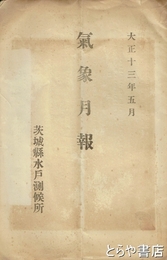 大正十三年五月
氣象月報
茨城縣水戸測候所
とらや書房